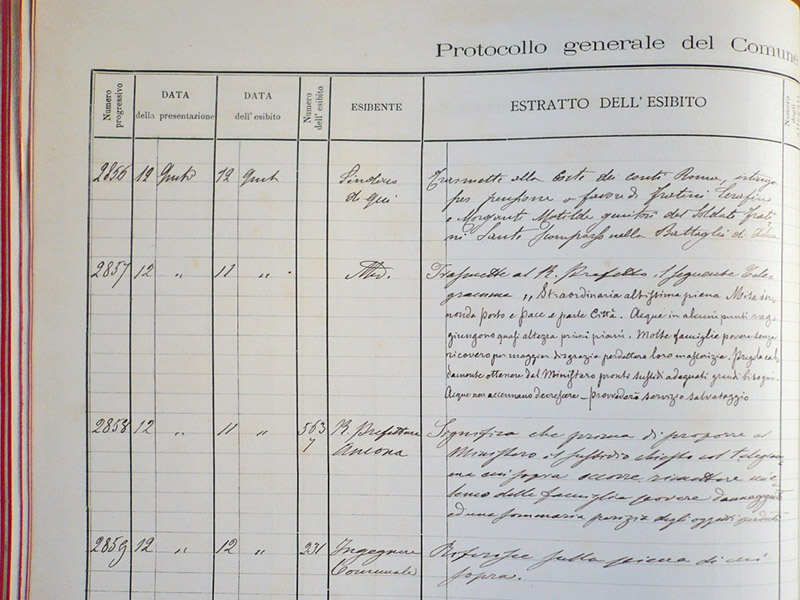 Protocollo generale del Comune
Numero progressivo
DATA
della presentazione
DATA
dell' esibito
Numero dell' esibito
ESIBENTE
ESTRATTO DELL' ESIBITO
2856 12 12 Sindaco
di qui
Trasmette alla Corte dei conti Roma,
per pensione a favore di Fratini Serafino
e Morganti Matilde genitori del Soldato Frati
ni Santi scomparso nella Battaglia di Adua
2857 12 „ 11 „ Med.
Trasmette al R. Prefetto il seguente Tele
gramma „ Straordinaria altissima piena Misa in
nonda Porto e Pace e parte Città. Acque in alcuni punti rag
giungono quasi altezza primi piani. Molte famiglie povere senza
ricovero per maggior disgrazia perdettero loro masserizie. Pregola cal
damente ottenere dal Ministero pronti sussidi adeguati grandi bisogni.
Acque non accennano decrescere – provvederò servizio salvataggio
2858 12 „ 11 „ 563
7
R. Prefettura
Ancona
Significa che prima di proporre al
Ministero il sussidio chiesto col telegram
ma cui sopra occorre rimettere un e
lenco delle famiglie povere danneggiate
ed una sommaria perizia degli oggetti perduti
2859 12 „ 12 „ 231 Ingegnere
Comunale
Riferisce sulla piena di cui
sopra.